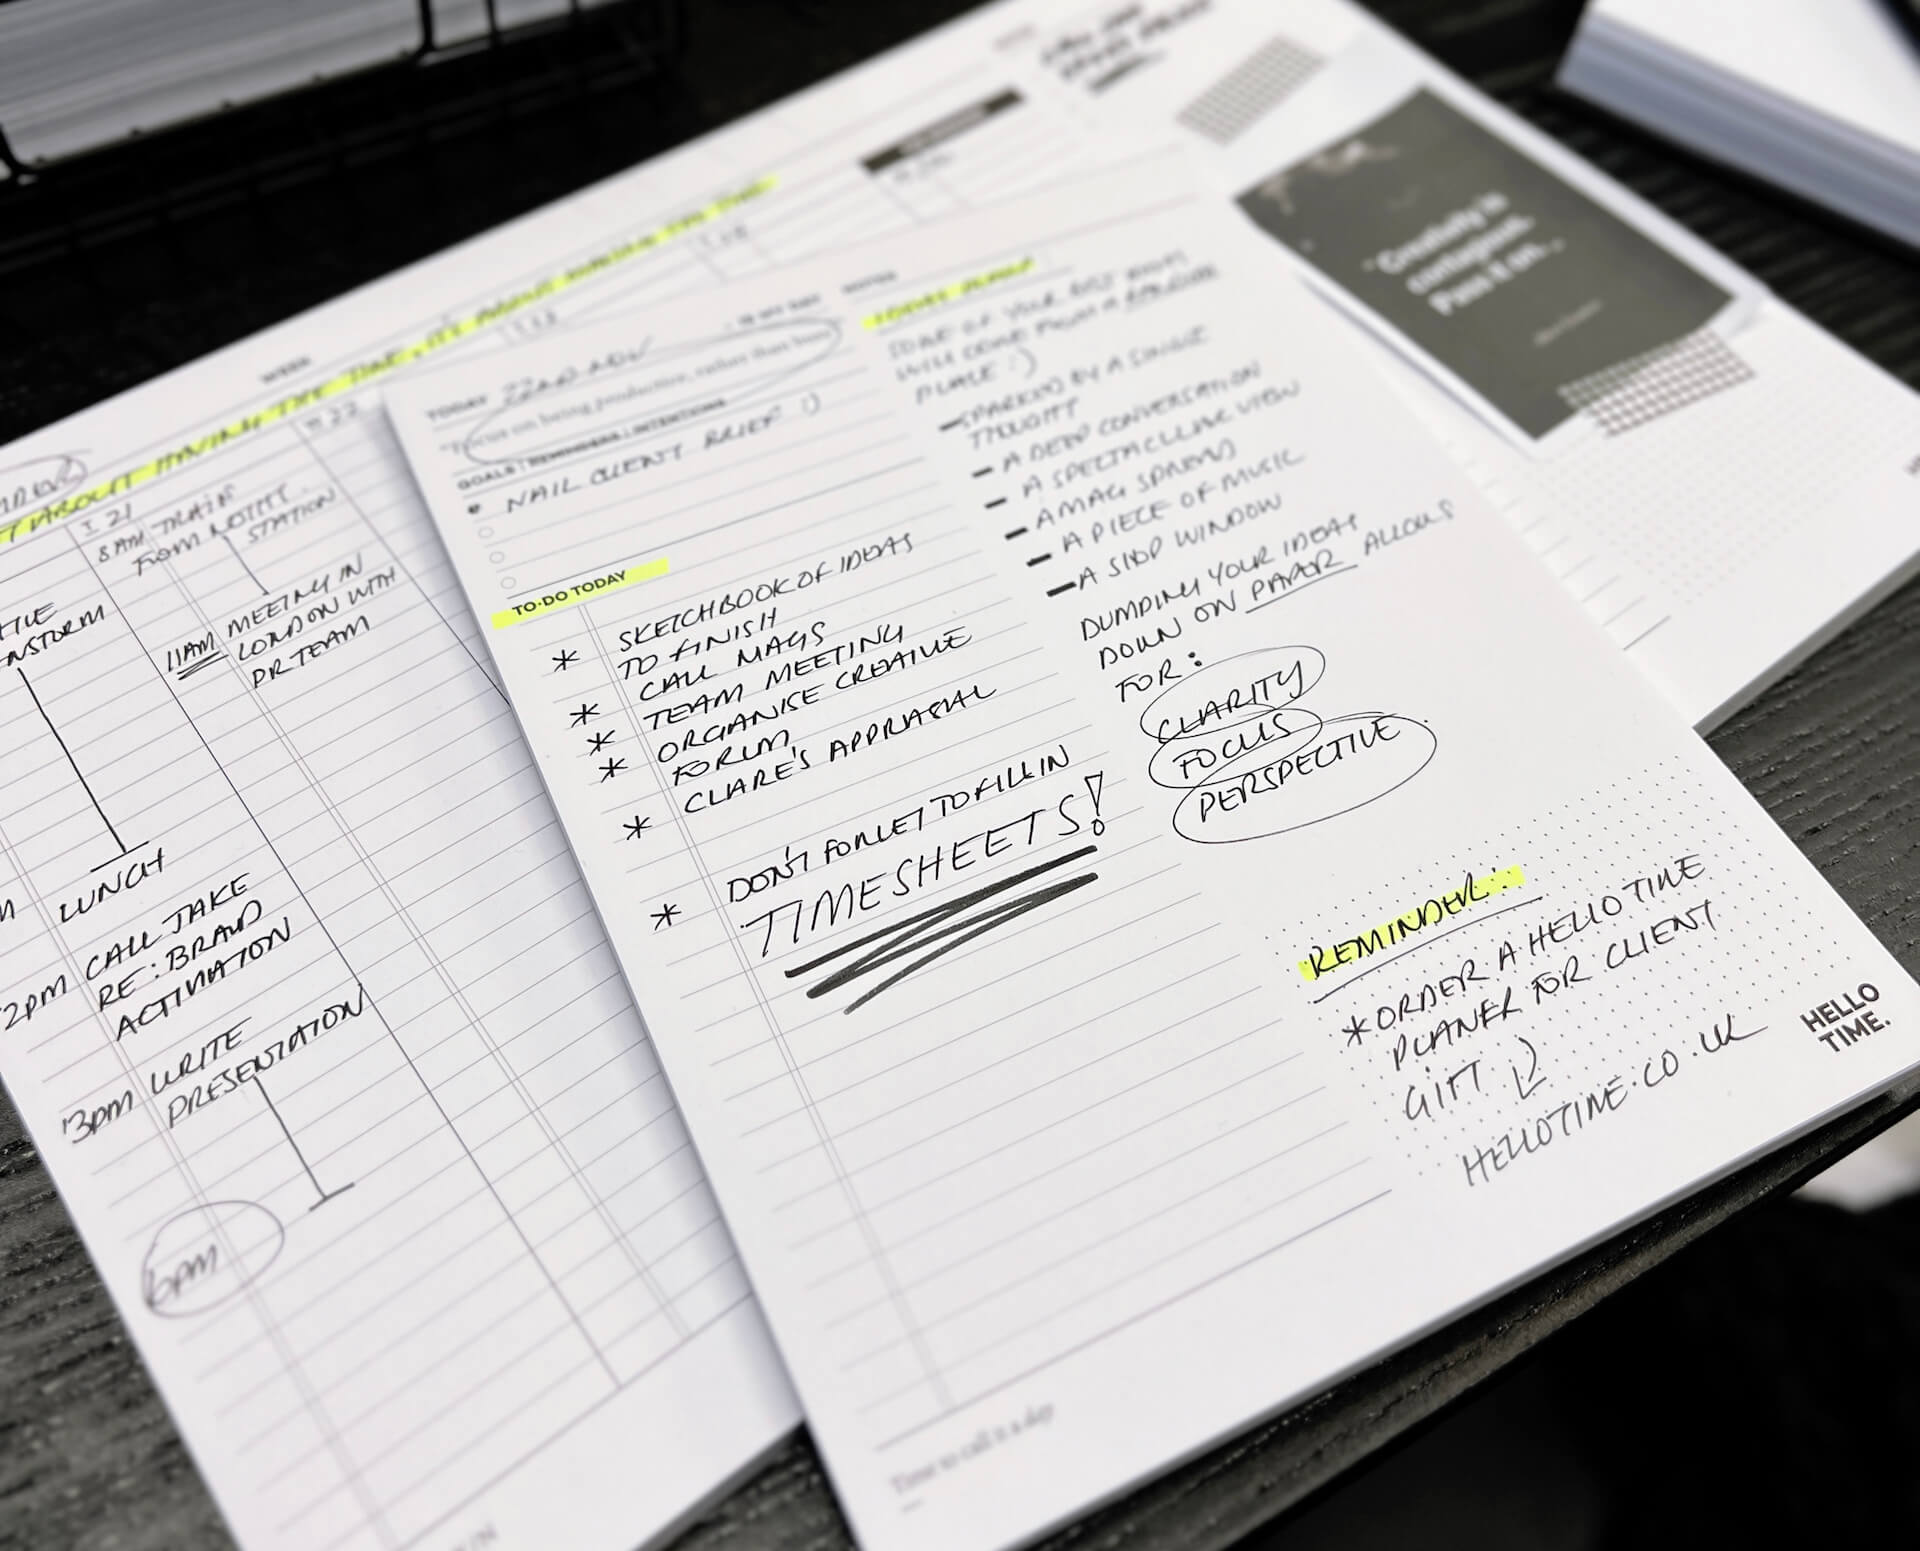 WEEK
ABOUT HAVING THE TIME, IT'S ABOUT MAKING THE TIME
T 21
8AM TRAIN
FROM NOTTT.
STATION
11AM MEETING IN
LONDON WITH
PR TEAM
LUNCH
2PM CALL JAKE
RE: BRAND
ACTIVATION
3PM WRITE
PRESENTATION
6PM
TODAY 22ND NOV
"Focus on being productive, rather than busy
GOALS | REMINDERS | INTENTIONS
NAIL CLIENT BRIEF :)
TO-DO TODAY
* SKETCHBOOK OF IDEAS
TO FINISH
* CALL MAGS
* TEAM MEETING
* ORGANISE CREATIVE
FORUM
* CLARE'S APPRASIAL
* DON'T FORGET TO FILL IN
TIMESHEETS!
Time to call it a day
NOTES
SOME OF YOUR BEST IDEAS
WILL COME FROM A
PLACE :)
- SPARKED BY A SINGLE
THOUGHT
- A DEEP CONVERSATION
- A SPECTACULAR VIEW
- A MAG SPREAD
- A PIECE OF MUSIC
- A SHOP WINDOW
DUMPING YOUR IDEAS
DOWN ON PAPER ALLOWS
FOR:
CLARITY
FOCUS
PERSPECTIVE
REMINDER:
* ORDER A HELLO TIME
PLANER FOR CLIENT
GIFT :)
HELLOTIME.CO.UK
HELLO
TIME.
"Creativity is
contagious.
Pass it on."